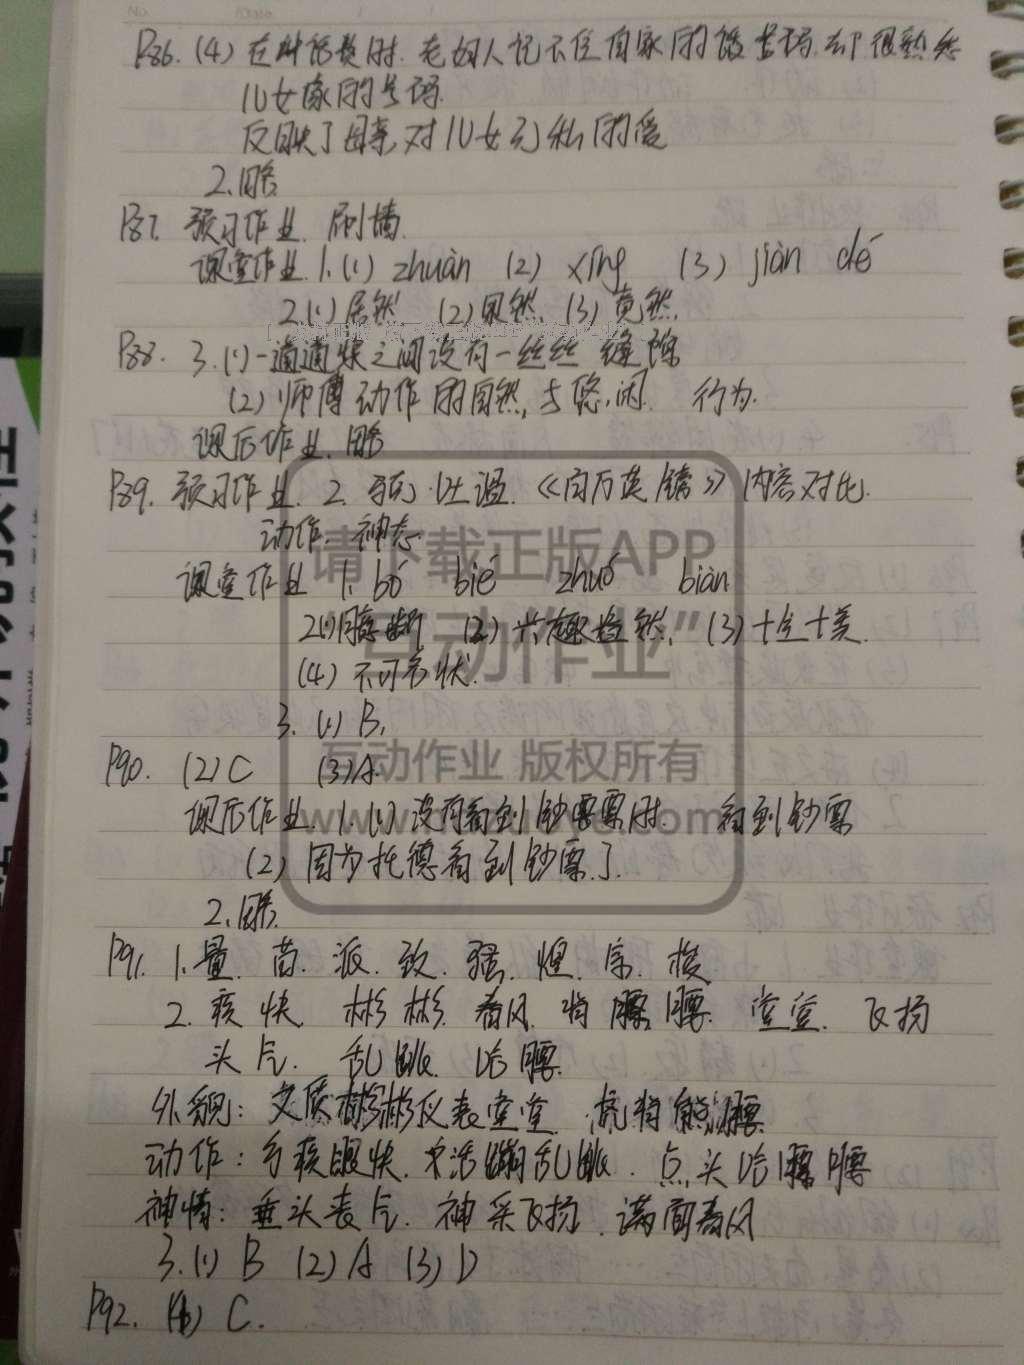 P86. (4) 在 时. 老妇人记不住自家的 号码. 却很熟悉
儿女家的号码.
反映了母亲对儿女无私的爱
2.略
P87. 预习作业. 刷墙.
课堂作业. 1.(1) zhuàn (2) xíng (3) jiàn dé
2.(1) 居然 (2) 果然. (3) 竟然.
P88. 3.(1) 一 之间没有一丝丝缝隙
(2) 师傅动作的自然, 悠闲. 行为.
课后作业. 略
P89. 预习作业. 2. 《 》 内容对比.
动作. 神态
课堂作业 1. bó biě zhuó biàn
2(1) (2) 兴趣盎然. (3) 十全十美.
(4) 不可名状.
3. (1) B,
P90. (2) C (3) A.
课后作业. 1.(1) 没有看到钞票时. 看到钞票
(2) 因为托德看到钞票了.
2.略.
P91. 1. 量. 苗. 派. 致. 骚. 煌. 宗. 梭
2. 疾 快. 彬彬. 春风. 将 腰. 堂堂. 飞扬
头 气. 乱跳. 哈腰.
外貌: 文质彬彬 仪表堂堂. 熊腰
动作: 手疾眼快. 活蹦乱跳. 点头哈腰
神情: 垂头丧气. 神采飞扬. 满面春风
3.(1) B (2) A (3) D
P92. (4) C.
请下载正版APP
“互动作业”
互动作业 版权所有